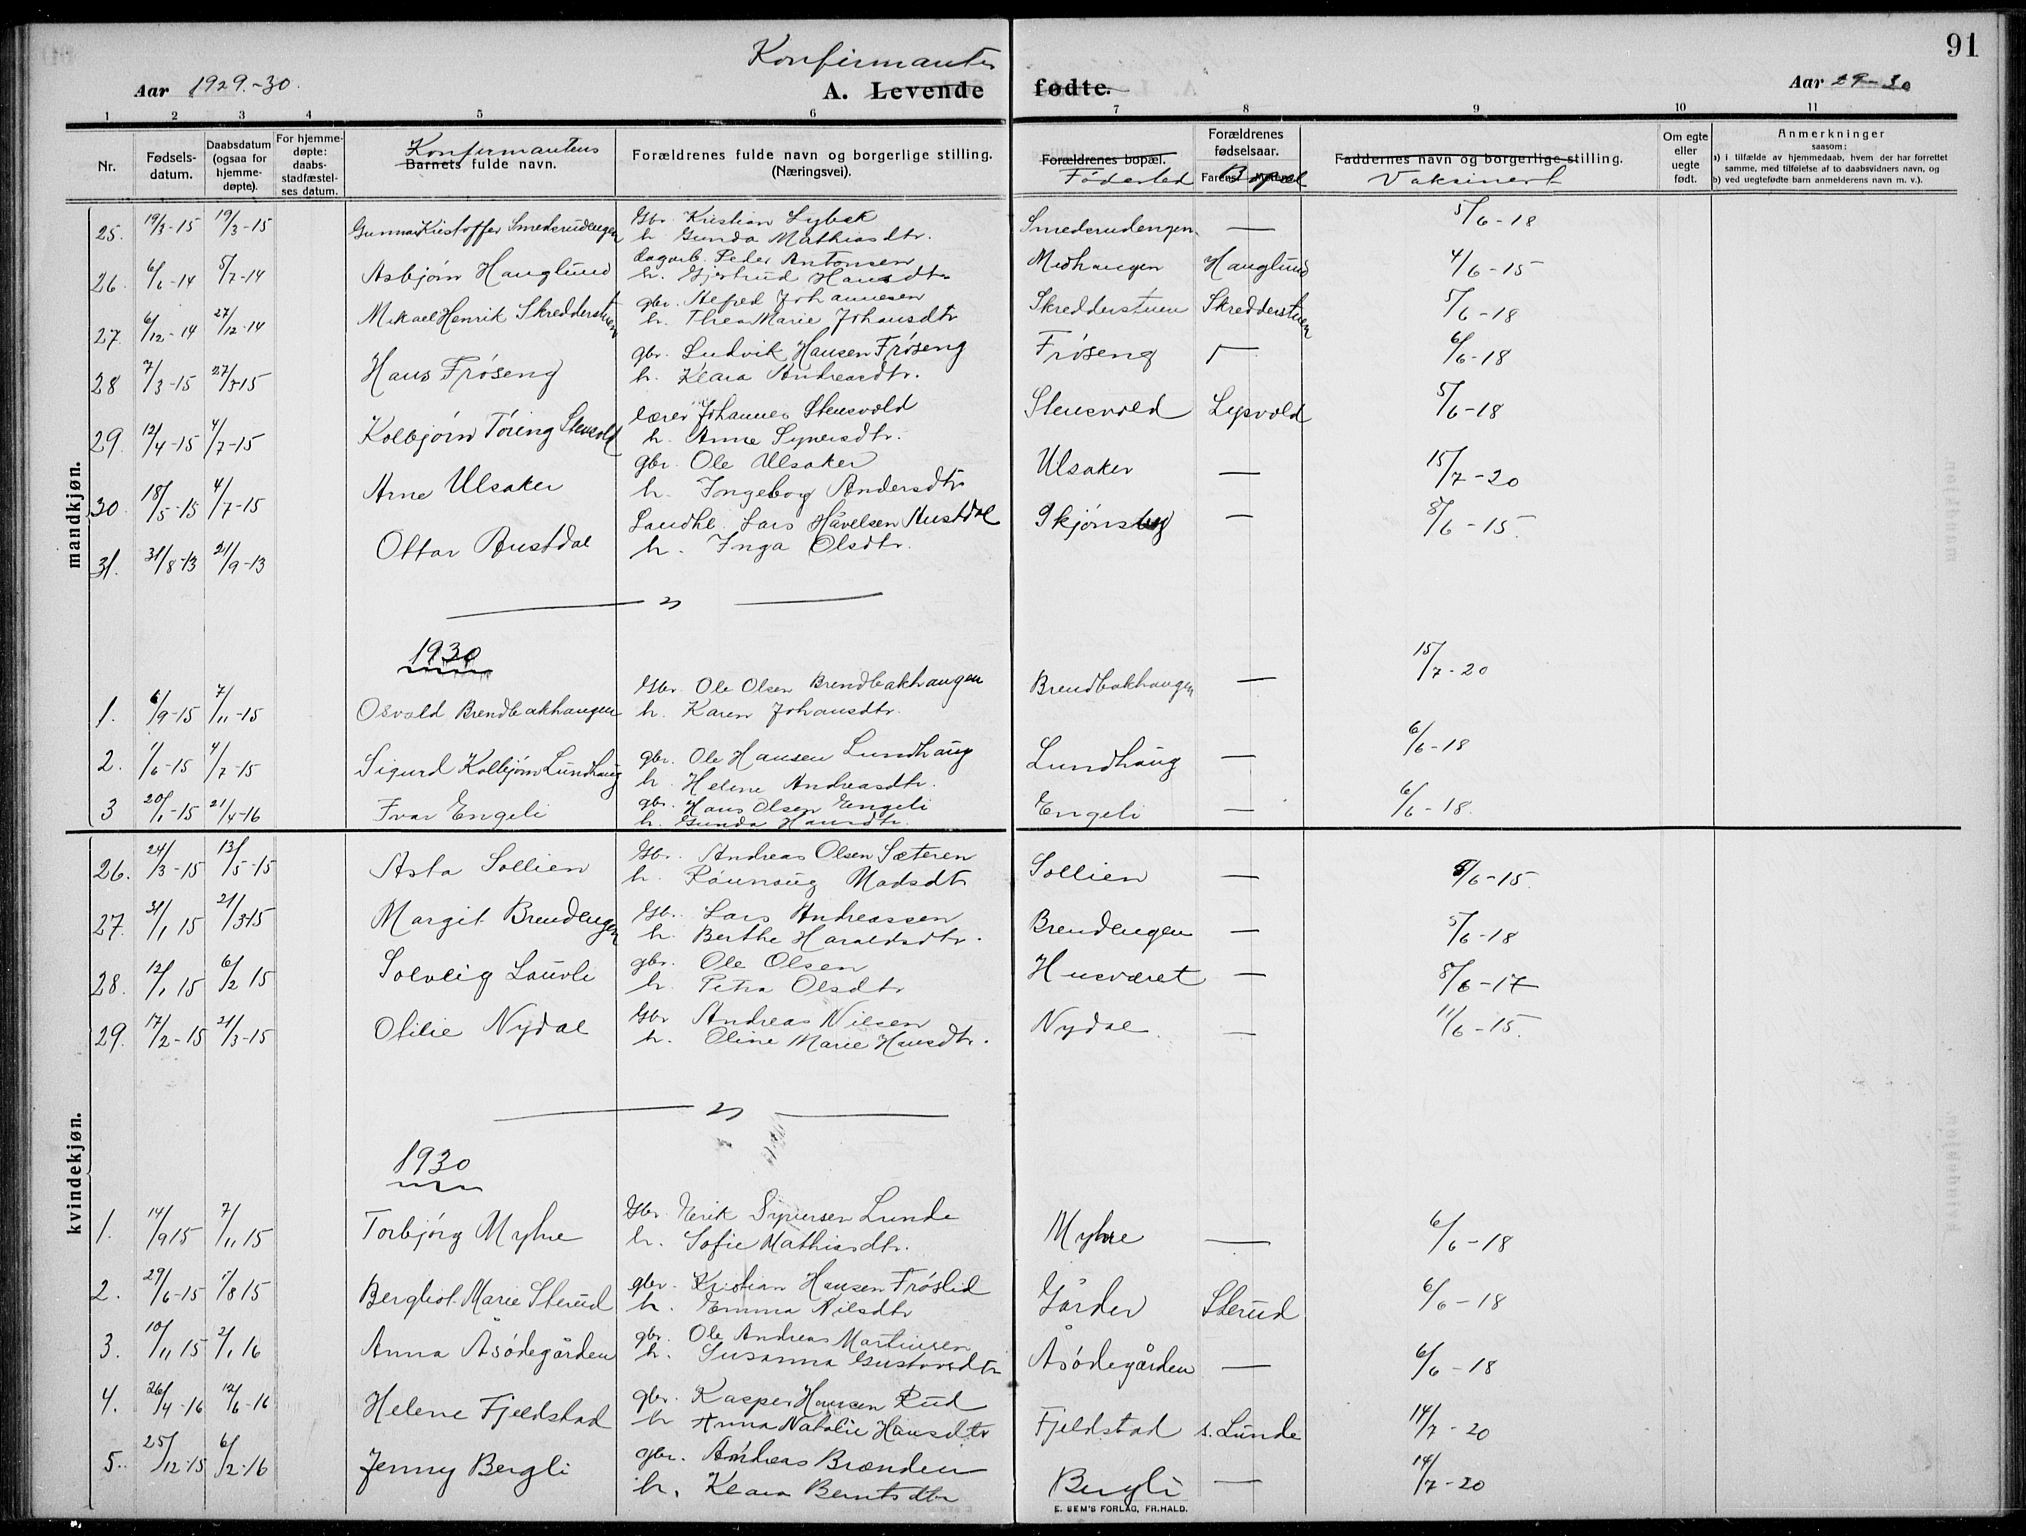 91
Konfirmanter
Aar 1929.-30. A. Levende fødte. Aar 29-30
1 2 3 4 5 6 7 8 9 10 11
Nr. Fødsels-datum. Daabsdatum (ogsaa for hjemme-døpte). For hjemme-døpte: daabs-stadfæstel-ses datum. Konfirmantens Barnets fulde navn. Forældrenes fulde navn og borgerlige stilling. (Næringsvei). Forældrenes bopæl. Fødested Forældrenes fødselsaar. Farens Bopæl Faddernes navn og borgerlige stilling. Vaksinert Om egte eller uegte født. Anmerkninger saasom: a) i tilfælde av hjemmedaab, hvem der har forrettet samme, med tilføielse af to daabsvidners navn, og b) ved uegtefødte barn anmelderens navn m. v.).
mandkjøn.
25. 19/3-15 19/3-15 Gunnar Kristoffer Smederudengen Gbr. Kristian Lybek Smederudengen — 5/6-18
h. Gunda Mathiasdtr.
26. 6/6-14 5/7-14 Asbjørn Hauglund dagarb. Peder Antonsen Midhaugen Hauglund 4/6-15
h. Gjertrud Hansdtr
27. 6/12-14 27/12-14 Mikael Henrik Skredderstuen gbr. Alfred Johannesen Skredderstuen Skredderstuen 5/6-18
h. Thea Marie Johansdtr
28 7/3-15 27/3-15 Hans Frøseng gbr. Ludvik Hansen Frøseng Frøseng — 6/6-18
h. Klara Andreasdtr.
29. 12/4-15 4/7-15 Kolbjørn Tøring Stensvold lærer Johannes Stensvold Stensvold Lysvold 5/6-18
h. Anne Syversdtr.
30. 18/5-15 4/7-15 Arne Ulsaker gbr. Ole Ulsaker Ulsaker — 15/7-20
h. Ingeborg Andersdtr
31. 31/8-13 21/9-13 Ottar Austdal Landhl. Lars Håvelsen Austdal Skjønsby — 8/6-15.
h. Inga Olsdtr.
1930
1. 6/9-15 7/11-15 Osvald Brendbakhaugen Gbr. Ole Olsen Brendbakhaugen Brendbakhaugen — 15/7-20
h. Karen Johansdtr.
2. 1/6-15 4/7-15 Sigurd Kolbjørn Lundhaug gbr. Ole Hansen Lundhaug Lundhaug — 6/6-18
h. Helene Andreasdtr.
3 20/1-15 21/4-16 Ivar Engeli gbr. Hans Olsen Engeli Engeli — 6/6-18.
h. Gunda Hansdtr.
kvindekjøn.
26. 24/3-15 13/5-15 Asta Sollien Gbr. Andreas Olsen Sæteren Sollien — 8/6-15.
h. Raunsug Madsdtr
27. 31/1 15 21/3-15 Margit Brendengen Gb. Lars Andreassen Brendengen — 5/6-18
h. Berthe Haraldsdtr.
28. 12/1 15 6/2 15 Solveig Lauvli gbr. Ole Olsen Husværet — 8/6-17
h. Petra Olsdtr
29. 17/2-15 21/3-15 Otilie Nydal Gbr Andreas Nilsen Nydal — 11/6-15.
h. Oline Marie Hansdtr.
1930
1. 14/9 15 7/11 15 Torbjørg Myhre Gbr. Erik Syversen Lunde Myhre — 6/6-18
h. Sofie Mathiasdtr.
2. 29/6-15 1/8 15 Berghot Marie Sterud gbr. Kristian Hansen Frøslid Gårder Sterud 6/6-18
h. Emma Nilsdtr
3. 10/11 15 2/1 16 Anna Åsødegården gbr. Ole Andreas Martinsen Åsødegården — 6/6-18
h. Susanna Gustavsdtr
4. 26/4-16 12/6-16 Helene Fjeldstad gbr. Kasper Hansen Rud Fjeldstad s. Lunde 14/7-20
h Anna Natalie Hansdtr
5. 25/12-15 6/2-16 Jenny Bergli gbr. Andreas Brænden Bergli — 14/7-20
h. Klara Berntsdtr
E. SEM'S FORLAG, FR.HALD.